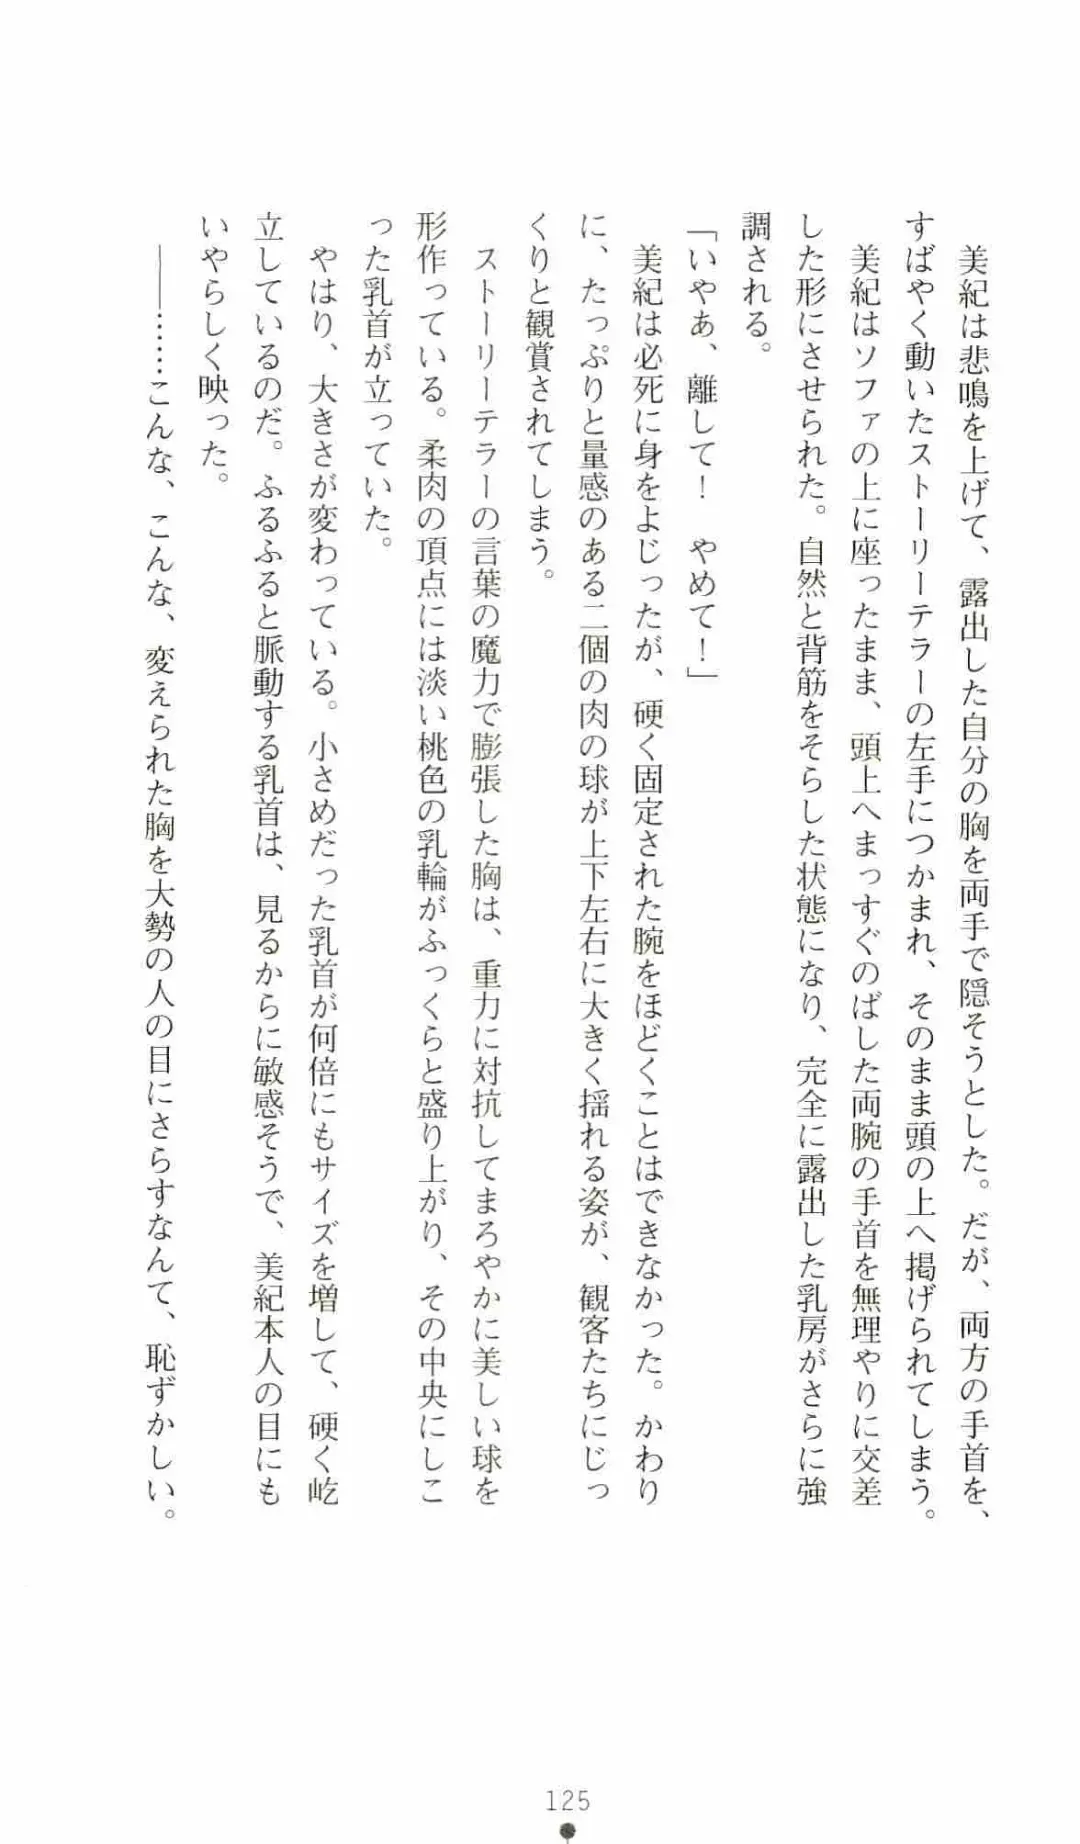 美紀は悲鳴を上げて、露出した自分の胸を両手で隠そうとした。だが、両方の手首を、
すばやく動いたストーリーテラーの左手につかまれ、そのまま頭の上へ掲げられてしまう。
　美紀はソファの上に座ったまま、頭上へまっすぐのばした両腕の手首を無理やりに交差
した形にさせられた。自然と背筋をそらした状態になり、完全に露出した乳房がさらに強
調される。
「いやあ、離して！　やめて！」
　美紀は必死に身をよじったが、硬く固定された腕をほどくことはできなかった。かわり
に、たっぷりと量感のある二個の肉の球が上下左右に大きく揺れる姿が、観客たちにじっ
くりと観賞されてしまう。
　ストーリーテラーの言葉の魔力で膨張した胸は、重力に対抗してまろやかに美しい球を
形作っている。柔肉の頂点には淡い桃色の乳輪がふっくらと盛り上がり、その中央にしこ
った乳首が立っていた。
　やはり、大きさが変わっている。小さめだった乳首が何倍にもサイズを増して、硬く屹
立しているのだ。ふるふると脈動する乳首は、見るからに敏感そうで、美紀本人の目にも
いやらしく映った。
　――……こんな、こんな、変えられた胸を大勢の人の目にさらすなんて、恥ずかしい。
125